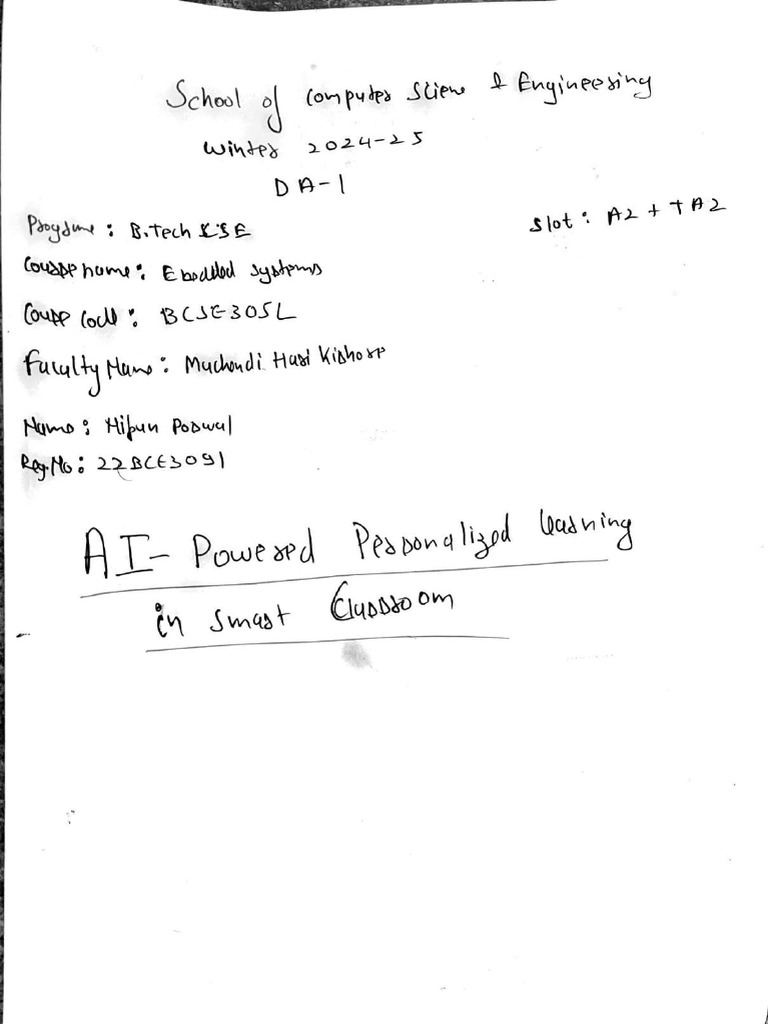 School of Computer Science & Engineering
Winter 2024-25
DA-1
Programe : B.Tech CSE
Slot : A2 + TA2
Course name : Ebedded Systems
Course Code : BCSE305L
Faculty Name : Muchondi Hari Kishore
Name : Nipun Poswal
Reg.No : 22BCE3091
AI- Powered Personalized learning
in Smart Classroom